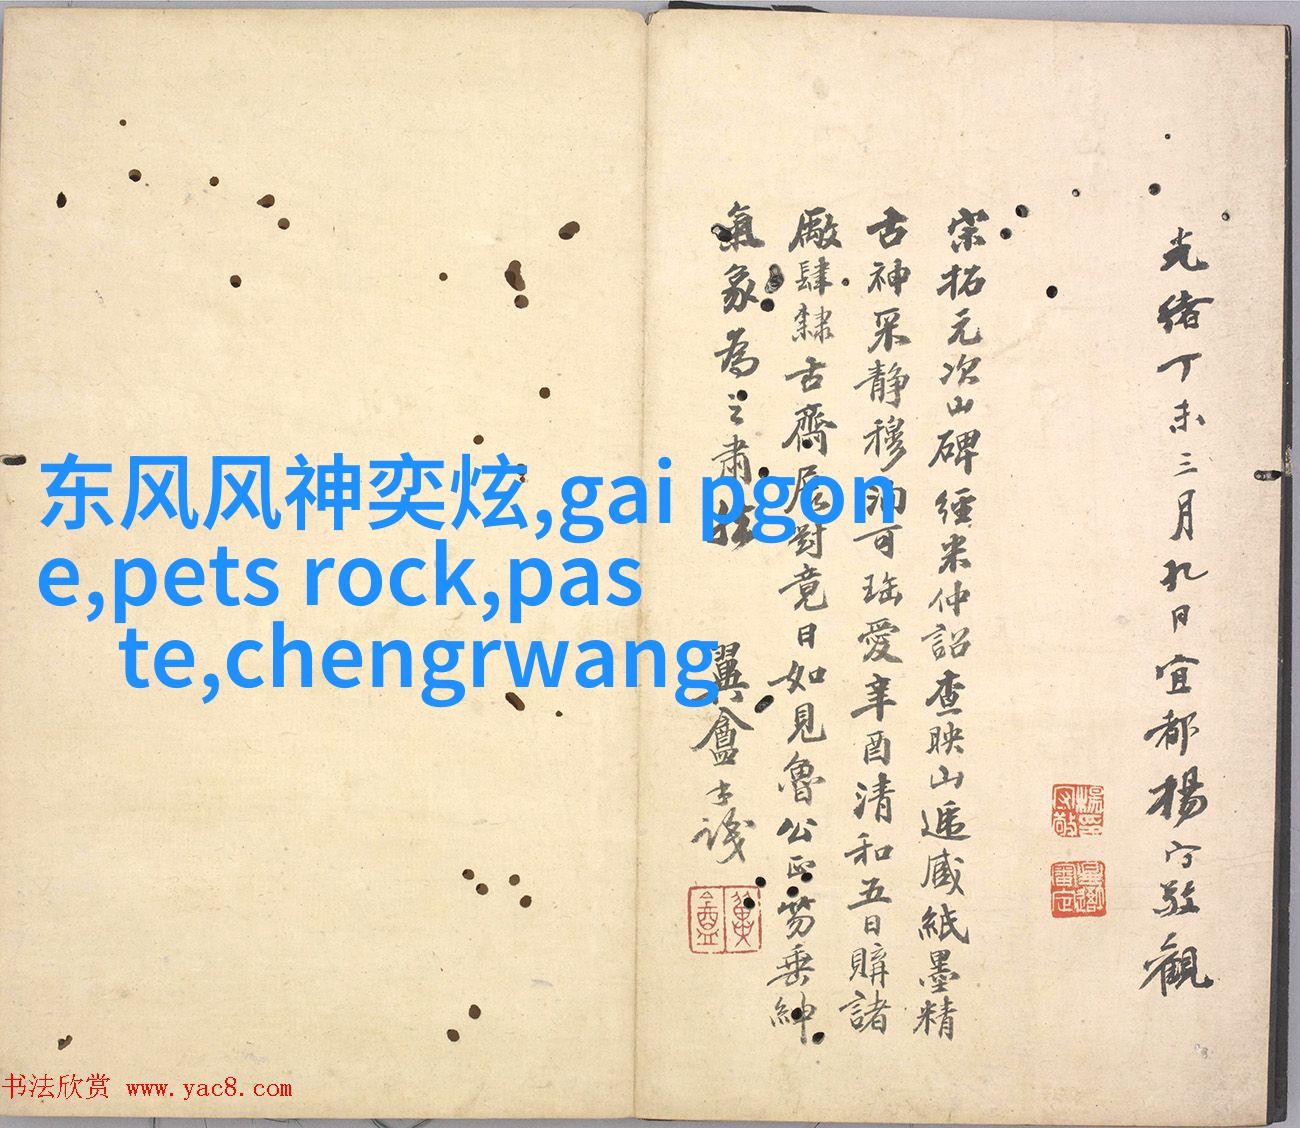 光緒丁未三月九日宜都楊守敬觀
宋拓元次山碑經米仲詔查映山遞臧紙墨精
古神采靜穆洵可珤愛辛酉清和五日購諸
廠肆隸古齋展對竟日如見魯公正笏垂紳
氣象為之肅然
翼盦士識
东风风神奕炫,gai pgon
e,pets rock,pas
te,chengrwang
书法欣赏 www.yac8.com